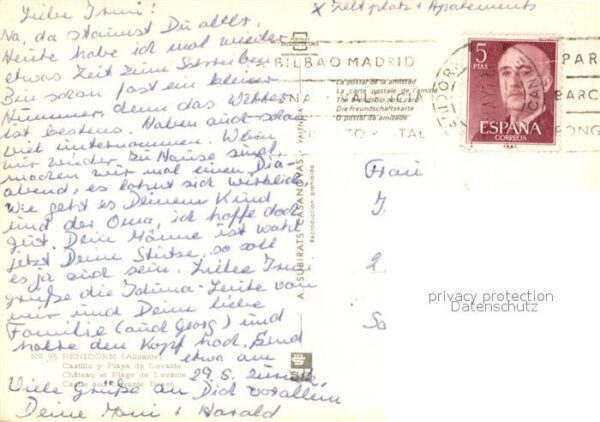 Liebe Irmi!
x Zeltplatz + Apartements
Na, da staunst Du aber.
Heute habe ich mal wieder
etwas Zeit zum Schreiben.
Bin schon fast ein kleiner
denn das Wetter
ist bestens. Haben auch schon
viel unternommen. Wenn
wir wieder zu Hause sind,
machen wir mal einen Dia-
abend, es lohnt sich wirklich.
Wie geht es Deinem Kind
und der Oma, ich hoffe doch
gut. Dein Männe ist wohl
jetzt Deine Stütze, so soll
es ja auch sein. Liebe Irmi
grüße die Iduna-Leute von
mir und Deine liebe
Familie (auch Georg) und
halte den Kopf hoch. Sind
etwa am
29.5. zurück.
Viele Grüße an Dich vor allem
Deine Moni + Harald
POSTALES
ESCUDO DE ORO
BILBAO MADRID
La postal de la amistad
La carte postale de l'amitié
The friendship post card
Die freundschaftskarte
O postal da amizade
A. SUBIRATS CASANOVAS - VALENCIA
Reproduccion prohibida
5
PTAS
ESPAÑA
CORREOS
PAR
BARC
ONG
Frau
I
2
So
privacy protection
Datenschutz
Nº 95 BENIDORM (Alicante)
Castillo y Playa de Levante
Château et Plage de Levante
Castle and Levante Beach